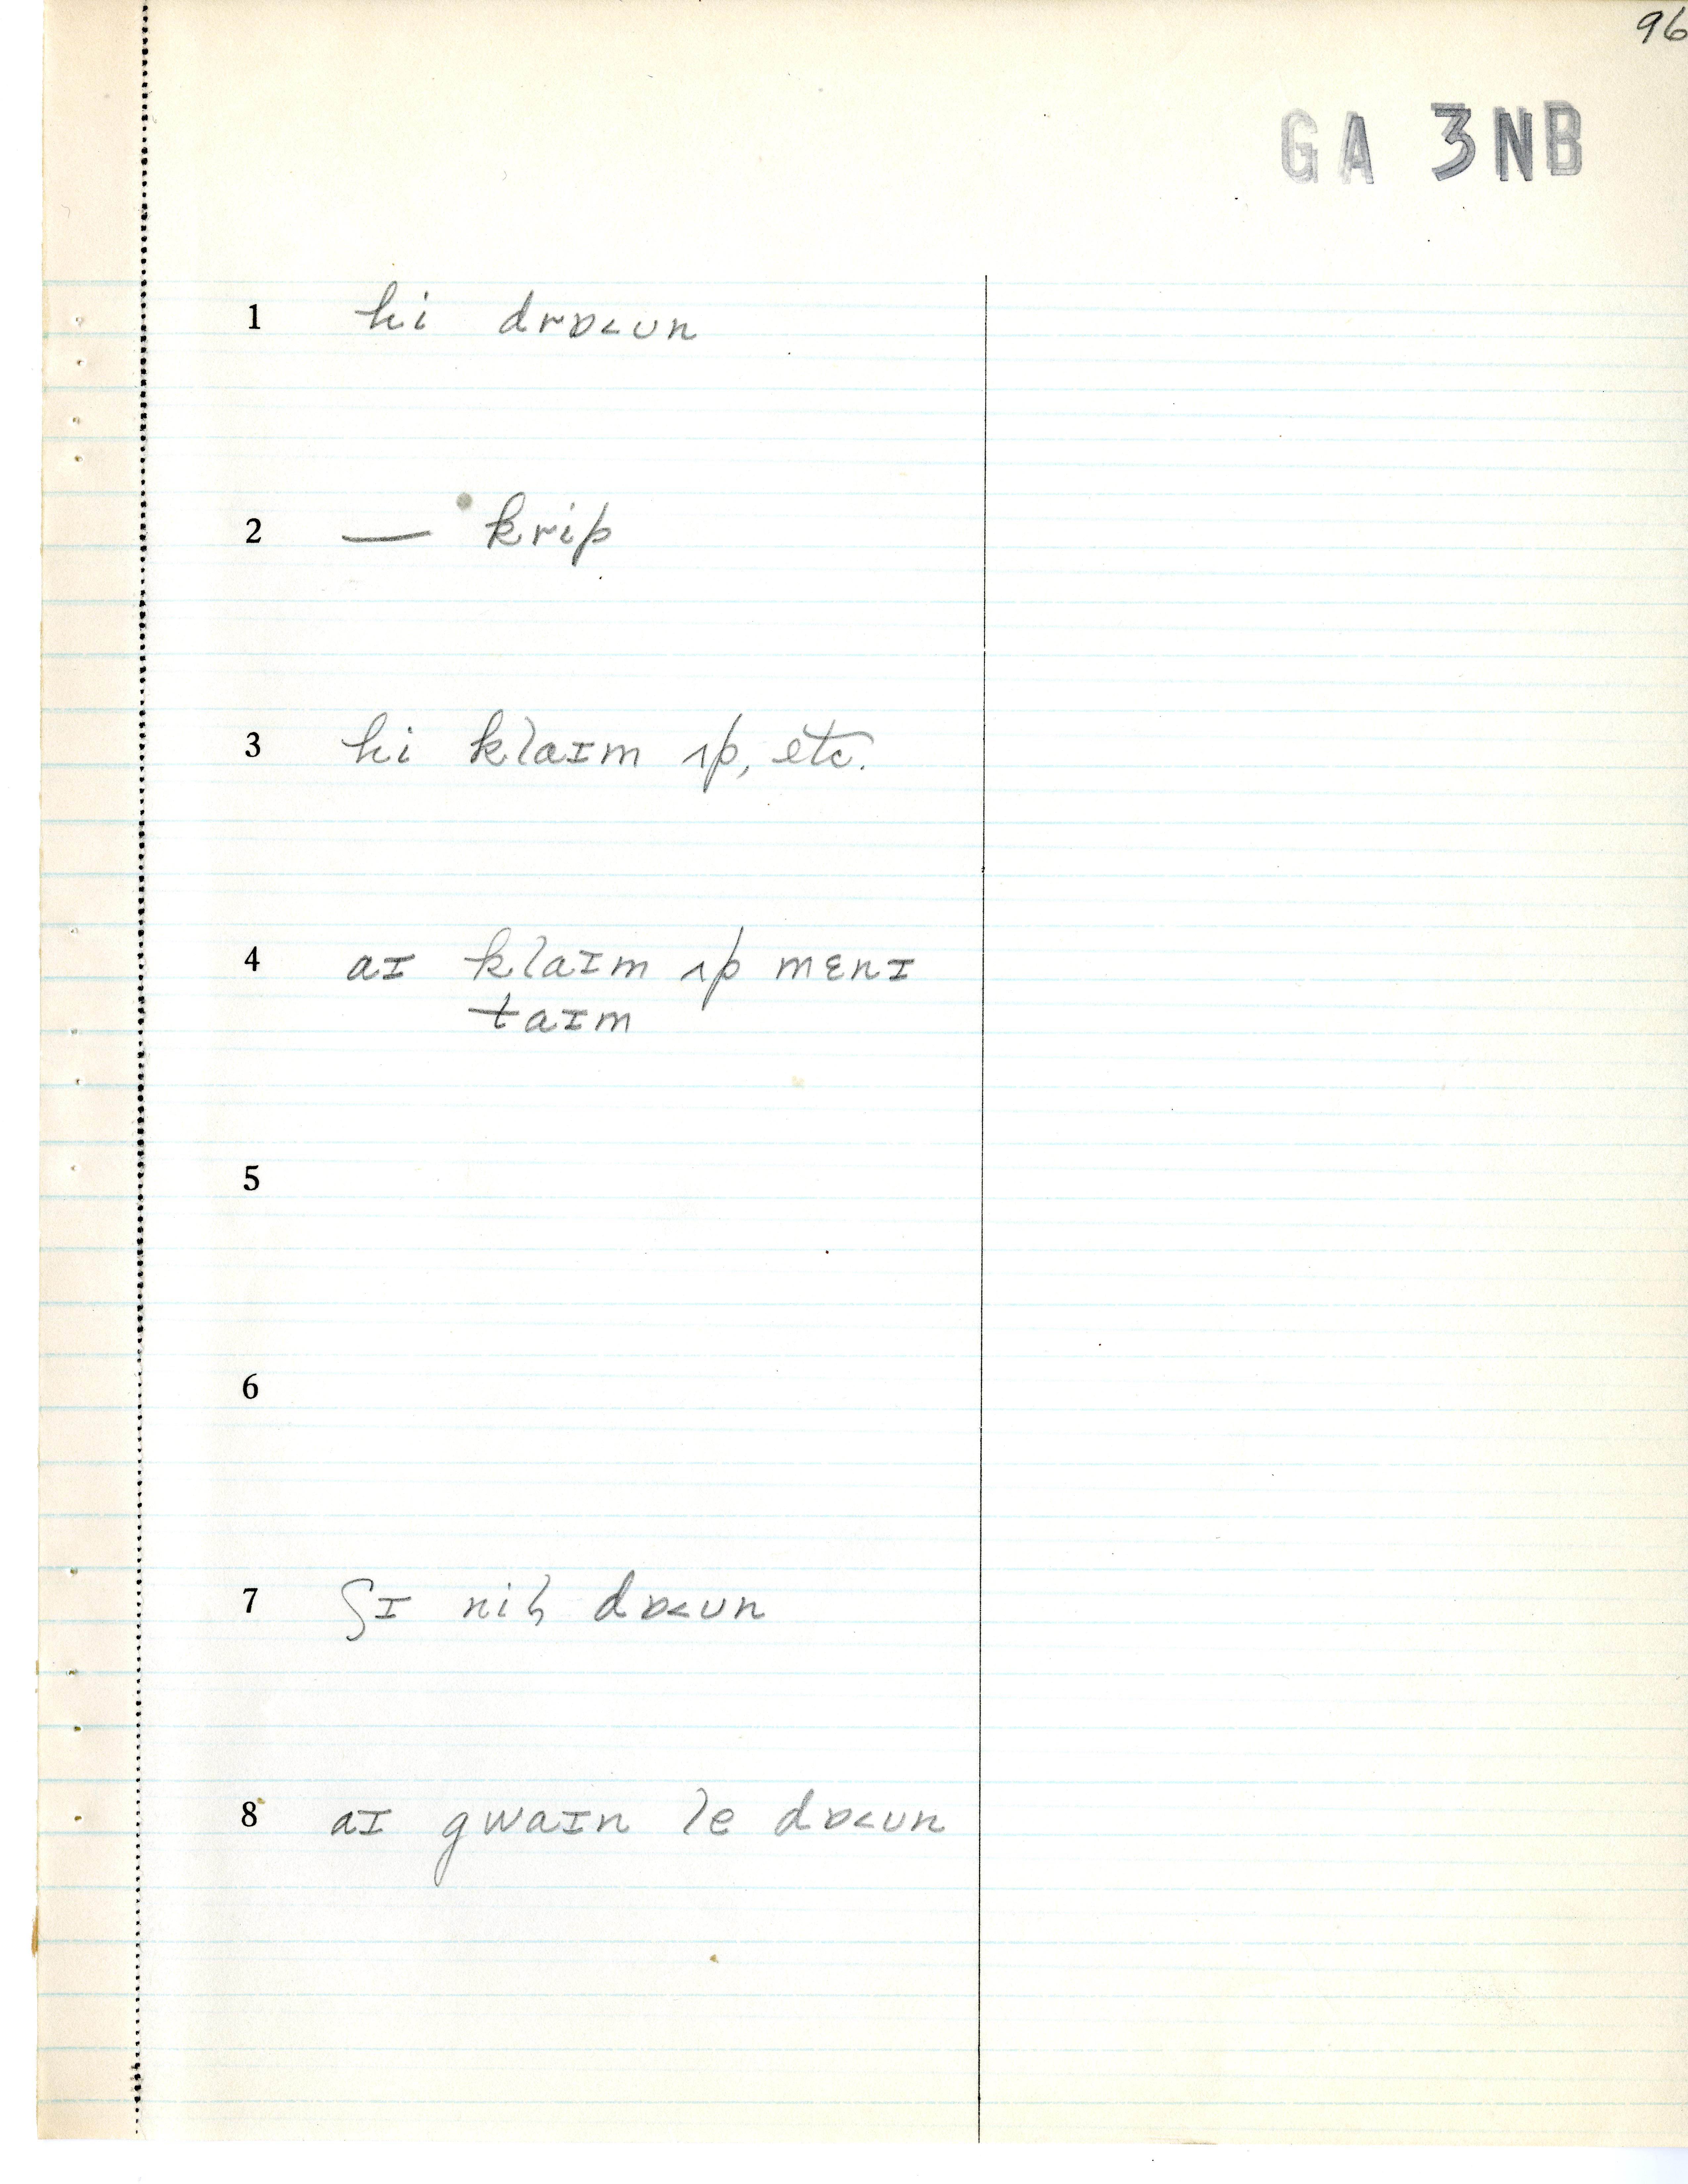 96
GA 3NB
1 hi drɒ˂ʊn
2 — krip
3 hi klaɪm ʌp, etc.
4 aɪ klaɪm ʌp mɛnɪ
taɪm
5
6
7 ʃɪ niɫ dɒ˂ʊn
8 aɪ gwaɪn le dɒ˂ʊn